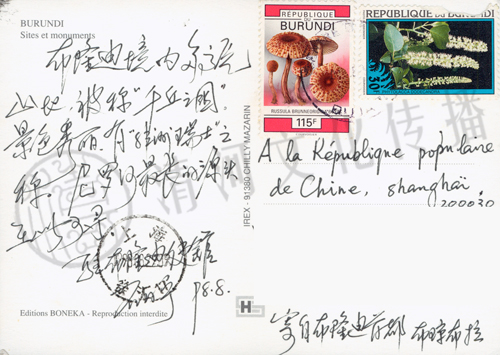 BURUNDI
Sites et monuments
布隆迪境内多高
山地,被称“千丘之国”,
景色秀丽,有“非洲瑞士”之
称。尼罗河最长的源头
布隆迪
98.8.
Editions BONEKA - Reproduction interdite
IREX - 91380 CHILLY MAZARIN
RÉPUBLIQUE
BURUNDI
115F
RÉPUBLIQUE DU BURUNDI
A la République populaire
de Chine, shanghai.
200030
寄自布隆迪首都 布琼布拉
清风文化传播